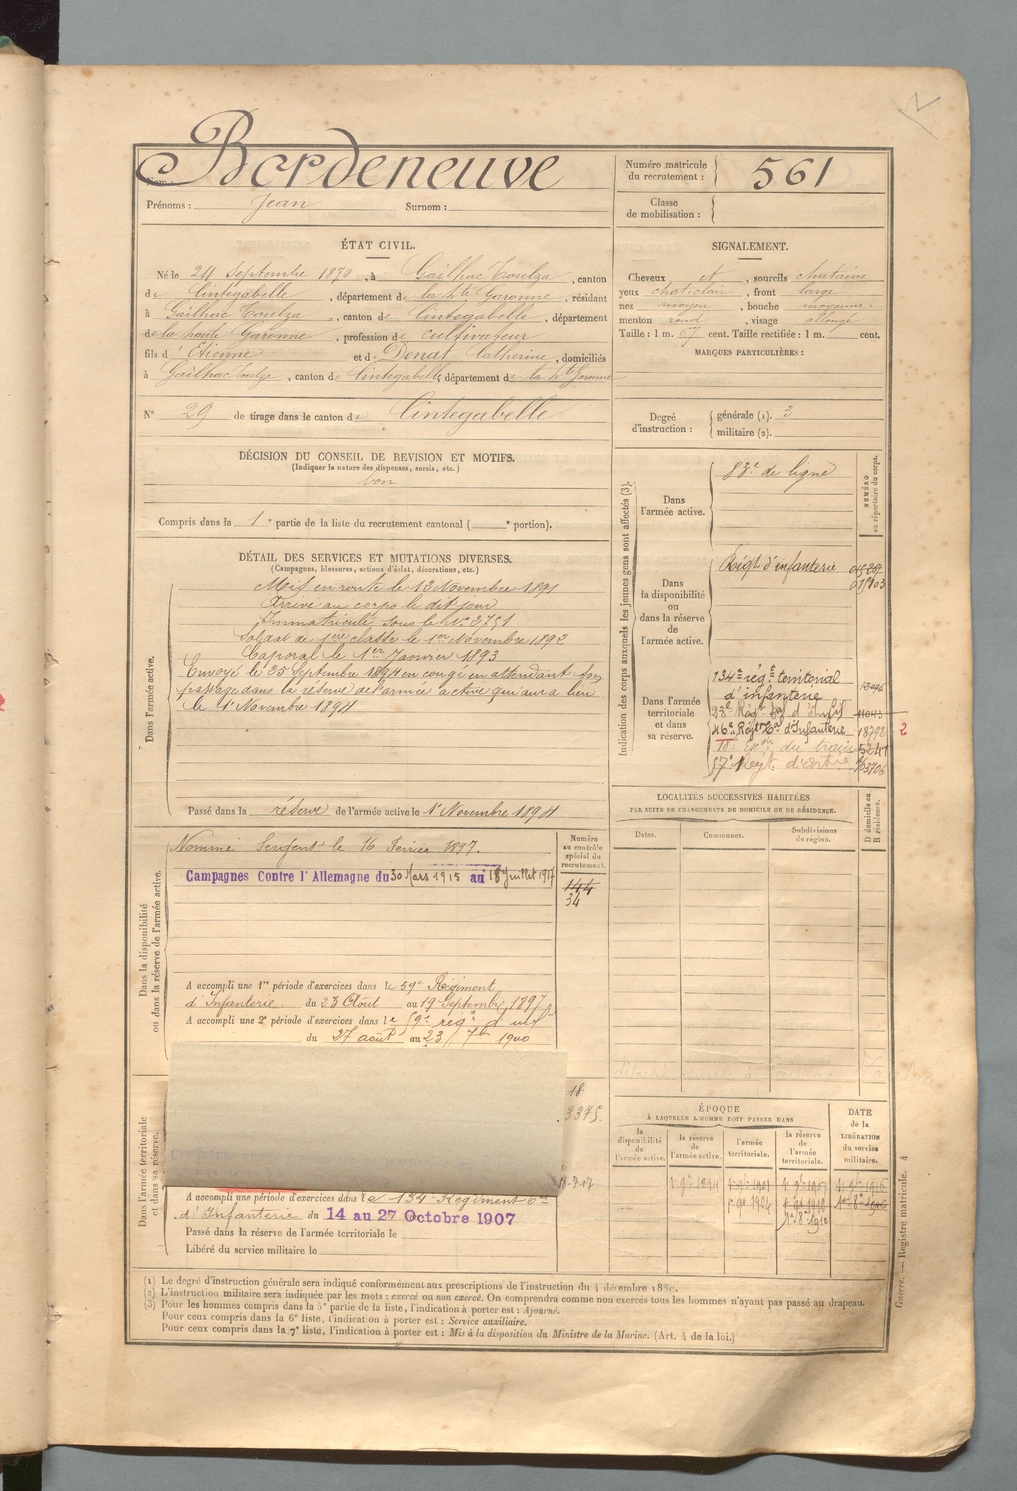 Nom : Bordeneuve
Prénoms : Jean Surnom :
Numéro matricule du recrutement : 561
Classe de mobilisation :
ÉTAT CIVIL.
Né le 24 Septembre 1870, à Gailhac Toulza, canton
de Cintegabelle, département de la Hte Garonne, résidant
à Gailhac Toulza, canton de Cintegabelle, département
de la haute Garonne, profession de cultivateur
fils d'Etienne et de Donat Catherine, domiciliés
à Gailhac Toulza, canton de Cintegabelle, département de la Hte Garonne
N° 29 de tirage dans le canton de Cintegabelle
SIGNALEMENT.
Cheveux et, sourcils chatains
yeux chat. clair, front large
nez moyen, bouche moyenne
menton rond, visage allongé
Taille : 1 m. 67 cent. Taille rectifiée : 1 m. cent.
MARQUES PARTICULIÈRES :
Degré d'instruction : générale (1). 3
militaire (2).
DÉCISION DU CONSEIL DE REVISION ET MOTIFS.
(Indiquer la nature des dispenses, sursis, etc.)
bon
Compris dans la 1e partie de la liste du recrutement cantonal ( e portion).
Indication des corps auxquels les jeunes gens sont affectés (3).
NUMÉRO au répertoire du corps.
Dans l'armée active. 83e de ligne
Dans la disponibilité ou dans la réserve de l'armée active. Régt d'infanterie
Dans l'armée territoriale et dans sa réserve.
134e régt territorial
d'infanterie
23e Régt d'Infie 11043
46e Régt Tal d'Infanterie 18792 2
du train 5241
57e Régt d'artie
DÉTAIL DES SERVICES ET MUTATIONS DIVERSES.
(Campagnes, blessures, actions d'éclat, décorations, etc.)
Dans l'armée active.
Mis en route le 13 Novembre 1891
Arrivé au corps le dit jour
Immatriculé sous le N° 2751
Soldat de 1ère classe le 1er Novembre 1892
Caporal le 1er Janvier 1893
Envoyé le 25 Septembre 1894 en congé en attendant son
passage dans la réserve de l'armée active qui aura lieu
le 1er Novembre 1894
Passé dans la réserve de l'armée active le 1er Novembre 1894
LOCALITÉS SUCCESSIVES HABITÉES
PAR SUITE DE CHANGEMENTS DE DOMICILE OU DE RÉSIDENCE.
Dates. Communes. Subdivisions de région. D domicile ou R résidence.
Dans la disponibilité ou dans la réserve de l'armée active.
Nommé Sergent le 16 Février 1897.
Campagnes Contre l'Allemagne du 30 Mars 1915 au 18 Juillet 1917
Numéro au contrôle spécial du recrutement.
144
34
A accompli une 1re période d'exercices dans le 59e Régiment
d'Infanterie du 23 Août au 19 Septembre 1897
A accompli une 2e période d'exercices dans le 59e régt d'inf
du 27 août au 23 7bre 1900
18
3375
Dans l'armée territoriale et dans sa réserve.
A accompli une période d'exercices dans le 134e Régiment
d'Infanterie du 14 au 27 Octobre 1907
Passé dans la réserve de l'armée territoriale le
Libéré du service militaire le
ÉPOQUE
À LAQUELLE L'HOMME DOIT PASSER DANS
la disponibilité de l'armée active. la réserve de l'armée active. l'armée territoriale. la réserve de l'armée territoriale.
DATE de la LIBÉRATION du service militaire.
(1) Le degré d'instruction générale sera indiqué conformément aux prescriptions de l'instruction du 4 décembre 1889.
(2) L'instruction militaire sera indiquée par les mots : exercé ou non exercé. On comprendra comme non exercés tous les hommes n'ayant pas passé au drapeau.
(3) Pour les hommes compris dans la 5e partie de la liste, l'indication à porter est : Ajourné.
Pour ceux compris dans la 6e liste, l'indication à porter est : Service auxiliaire.
Pour ceux compris dans la 7e liste, l'indication à porter est : Mis à la disposition du Ministre de la Marine. (Art. 4 de la loi.)
Guerre. — Registre matricule. 4